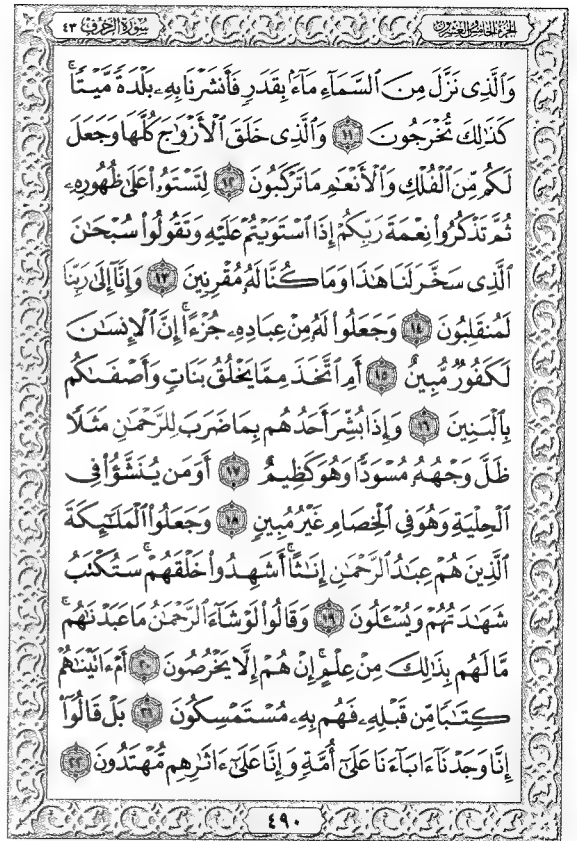 الجزء الخامس والعشرون
سورة الزخرف ٤٣
وَالَّذِى نَزَّلَ مِنَ السَّمَآءِ مَآءَۢ بِقَدَرٍ فَأَنشَرْنَا بِهِۦ بَلْدَةً مَّيْتًاۚ
كَذَٰلِكَ تُخْرَجُونَ ١١ وَالَّذِى خَلَقَ الْأَزْوَٰجَ كُلَّهَا وَجَعَلَ
لَكُم مِّنَ الْفُلْكِ وَالْأَنْعَٰمِ مَا تَرْكَبُونَ ١٢ لِتَسْتَوُۥا۟ عَلَىٰ ظُهُورِهِۦ
ثُمَّ تَذْكُرُوا۟ نِعْمَةَ رَبِّكُمْ إِذَا اسْتَوَيْتُمْ عَلَيْهِ وَتَقُولُوا۟ سُبْحَٰنَ
الَّذِى سَخَّرَ لَنَا هَٰذَا وَمَا كُنَّا لَهُۥ مُقْرِنِينَ ١٣ وَإِنَّآ إِلَىٰ رَبِّنَا
لَمُنقَلِبُونَ ١٤ وَجَعَلُوا۟ لَهُۥ مِنْ عِبَادِهِۦ جُزْءًاۚ إِنَّ الْإِنسَٰنَ
لَكَفُورٌ مُّبِينٌ ١٥ أَمِ اتَّخَذَ مِمَّا يَخْلُقُ بَنَاتٍ وَأَصْفَىٰكُم
بِالْبَنِينَ ١٦ وَإِذَا بُشِّرَ أَحَدُهُم بِمَا ضَرَبَ لِلرَّحْمَٰنِ مَثَلًا
ظَلَّ وَجْهُهُۥ مُسْوَدًّا وَهُوَ كَظِيمٌ ١٧ أَوَمَن يُنَشَّؤُا۟ فِى
الْحِلْيَةِ وَهُوَ فِى الْخِصَامِ غَيْرُ مُبِينٍ ١٨ وَجَعَلُوا۟ الْمَلَٰٓئِكَةَ
الَّذِينَ هُمْ عِبَٰدُ الرَّحْمَٰنِ إِنَٰثًاۚ أَشَهِدُوا۟ خَلْقَهُمْۚ سَتُكْتَبُ
شَهَٰدَتُهُمْ وَيُسْـَٔلُونَ ١٩ وَقَالُوا۟ لَوْ شَآءَ الرَّحْمَٰنُ مَا عَبَدْنَٰهُمۗ
مَّا لَهُم بِذَٰلِكَ مِنْ عِلْمٍۖ إِنْ هُمْ إِلَّا يَخْرُصُونَ ٢٠ أَمْ ءَاتَيْنَٰهُمْ
كِتَٰبًا مِّن قَبْلِهِۦ فَهُم بِهِۦ مُسْتَمْسِكُونَ ٢١ بَلْ قَالُوٓا۟
إِنَّا وَجَدْنَآ ءَابَآءَنَا عَلَىٰٓ أُمَّةٍ وَإِنَّا عَلَىٰٓ ءَاثَٰرِهِم مُّهْتَدُونَ ٢٢
٤٩٠